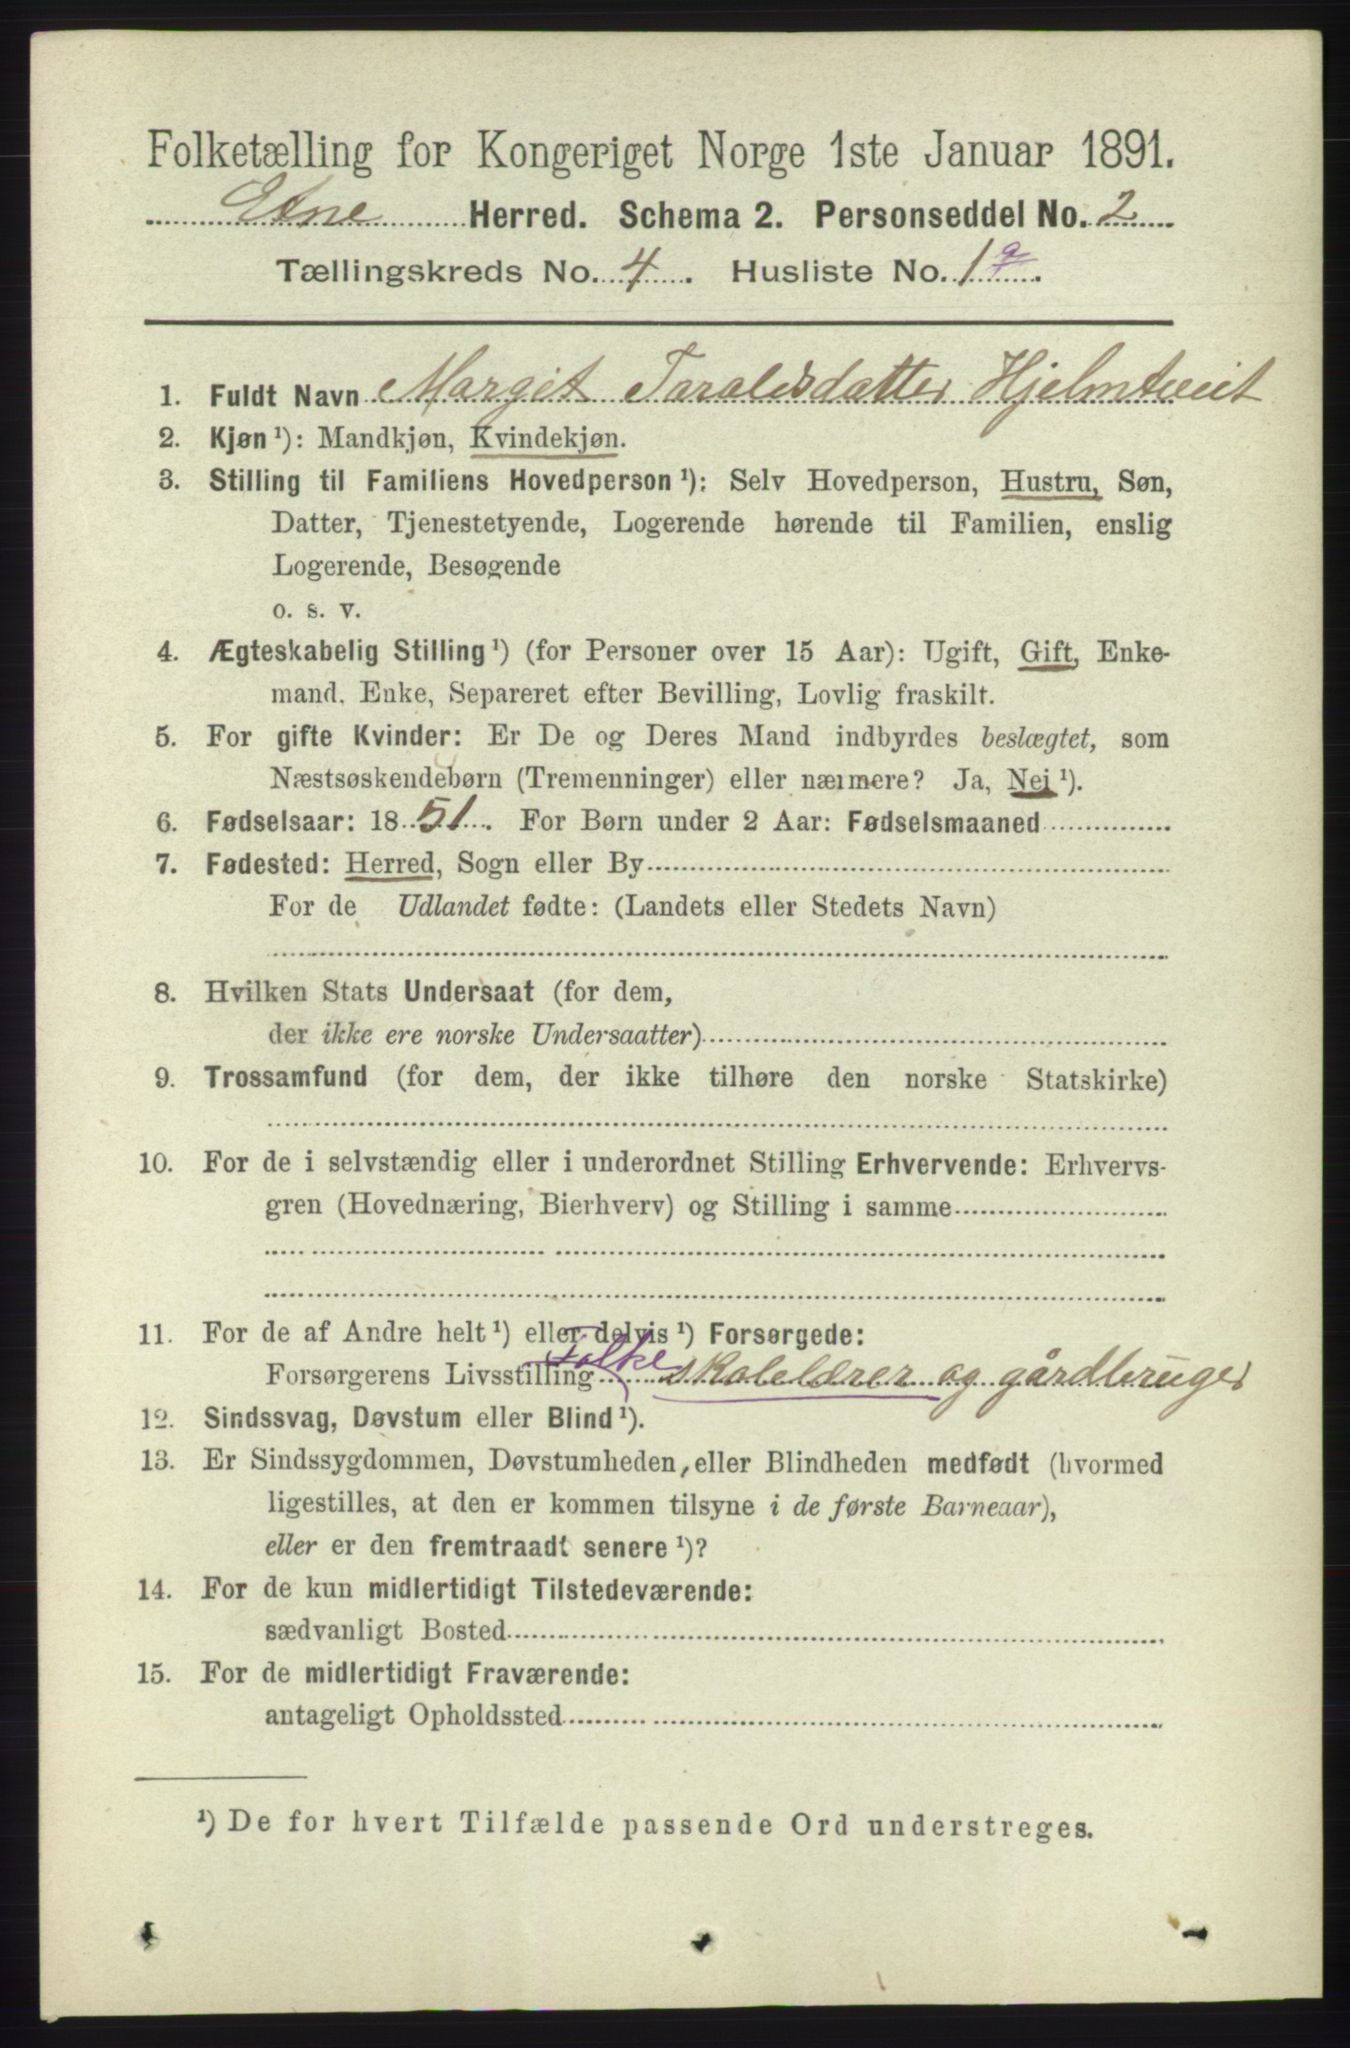 Folketælling for Kongeriget Norge 1ste Januar 1891.
Etne Herred. Schema 2. Personseddel No. 2
Tællingskreds No. 4. Husliste No. 1a.
1. Fuldt Navn Margit Taraldsdatter Hjelmtveit
2. Kjøn ¹): Mandkjøn, Kvindekjøn.
3. Stilling til Familiens Hovedperson ¹): Selv Hovedperson, Hustru, Søn,
Datter, Tjenestetyende, Logerende hørende til Familien, enslig
Logerende, Besøgende
o. s. v.
4. Ægteskabelig Stilling ¹) (for Personer over 15 Aar): Ugift, Gift, Enke-
mand. Enke, Separeret efter Bevilling, Lovlig fraskilt.
5. For gifte Kvinder: Er De og Deres Mand indbyrdes beslægtet, som
Næstsøskendebørn (Tremenninger) eller nærmere? Ja, Nei ¹).
6. Fødselsaar: 1851. For Børn under 2 Aar: Fødselsmaaned
7. Fødested: Herred, Sogn eller By
For de Udlandet fødte: (Landets eller Stedets Navn)
8. Hvilken Stats Undersaat (for dem,
der ikke ere norske Undersaatter)
9. Trossamfund (for dem, der ikke tilhøre den norske Statskirke)
10. For de i selvstændig eller i underordnet Stilling Erhvervende: Erhvervs-
gren (Hovednæring, Bierhverv) og Stilling i samme
11. For de af Andre helt ¹) eller delvis ¹) Forsørgede:
Forsørgerens Livsstilling Folkeskolelærer og gårdbruger
12. Sindssvag, Døvstum eller Blind ¹).
13. Er Sindssygdommen, Døvstumheden, eller Blindheden medfødt (hvormed
ligestilles, at den er kommen tilsyne i de første Barneaar),
eller er den fremtraadt senere ¹)?
14. For de kun midlertidigt Tilstedeværende:
sædvanligt Bosted
15. For de midlertidigt Fraværende:
antageligt Opholdssted
¹) De for hvert Tilfælde passende Ord understreges.